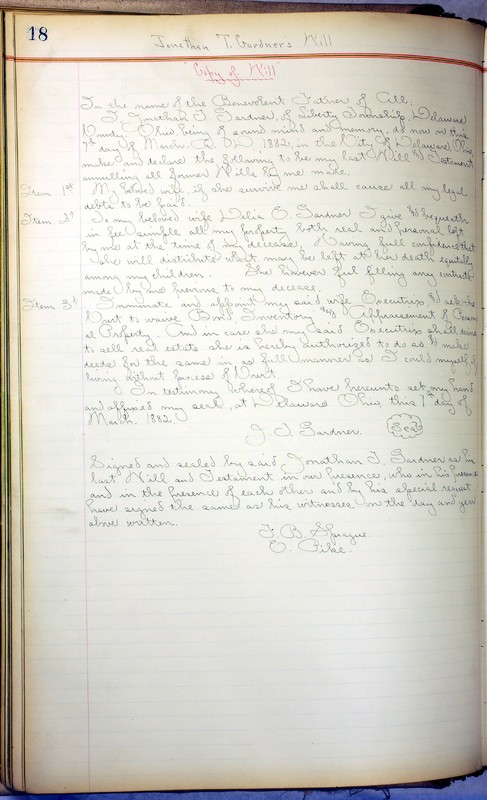 18
Jonathan T. Gardner's Will
Copy of Will
In the name of the Benevolent Father of All:
I, Jonathan T. Gardner, of Liberty Township, Delaware
County, Ohio being of sound mind and memory, do now on this
7th day of March, A. D. 1882, in the City of Delaware, Ohio
make and declare the following to be my last Will & Testament
annulling all former Wills by me made.
Item 1st My beloved wife, if she survive me shall cause all my legal
debts to be paid.
Item 2d To my beloved wife Delia E. Gardner I give & bequeath
in fee simple all my property both real and personal left
by me at the time of my decease, Having full confidence that
she will distribute what may be left at her death equitably
among my children. She however ful filling any contracts
made by me previous to my decease.
Item 3d I nominate and appoint my said wife Executrix & ask the
Court to waive Bond Inventory and Appraisement of Person
al Property. And in case she my said Executrix shall desire
to sell real estate she is hereby authorized to do so & make
deeds for the same in as full manner as I could myself, if
living without process of Court.
In testimony whereof I have hereunto set my hand
and affixed my seal, at Delaware Ohio, this 7th day of
March. 1882.
J. T. Gardner. Seal
Signed and sealed by said Jonathan T. Gardner as his
last Will and Testament in our presence, who in his presence
and in the presence of each other and by his special request
have signed the same as his witnesses on the day and year
above written.
F. B. Sprague.
E. Pike.